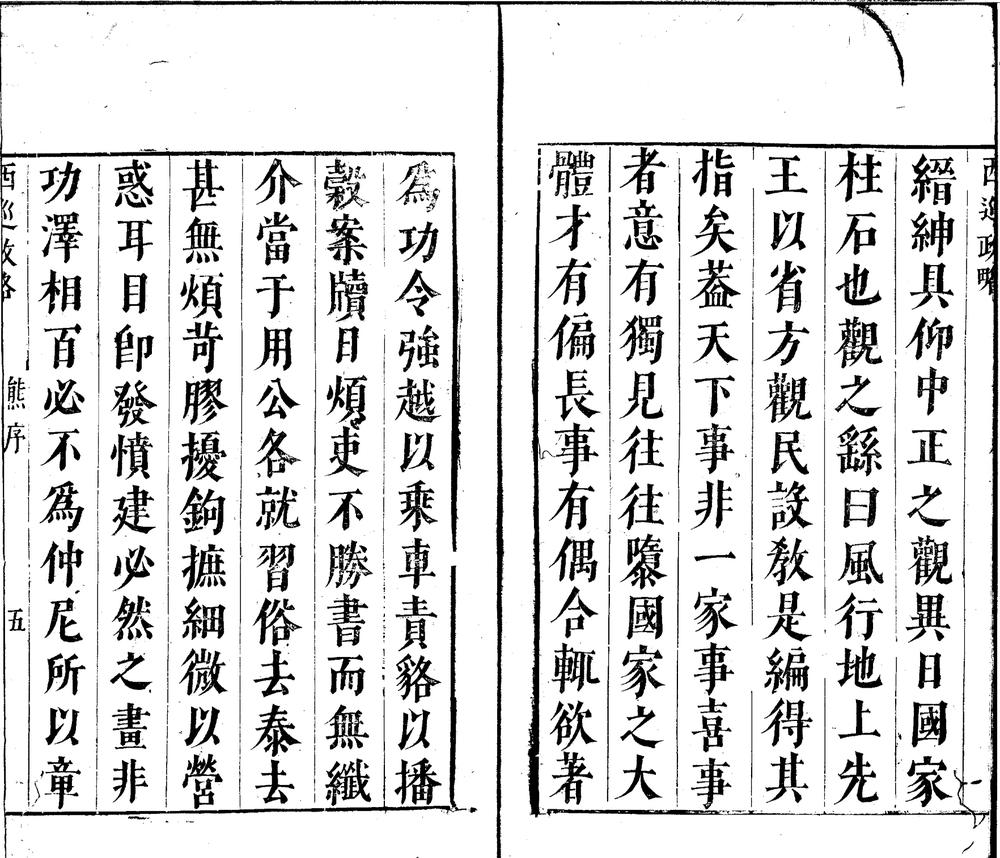 西巡政略
縉紳具仰中正之觀異日國家
柱石也觀之繇曰風行地上先
王以省方觀民設教是編得其
指矣葢天下事非一家事喜事
者意有獨見往往隳國家之大
體才有偏長事有偶合輒欲著
為功令強越以乘車責貉以播
穀案牘日煩吏不勝書而無纖
介當于用公各就習俗去泰去
甚無煩苛膠擾鉤摭細微以營
惑耳目卽發憤建必然之畫非
功澤相百必不為仲尼所以章
西巡政略
熊序
五